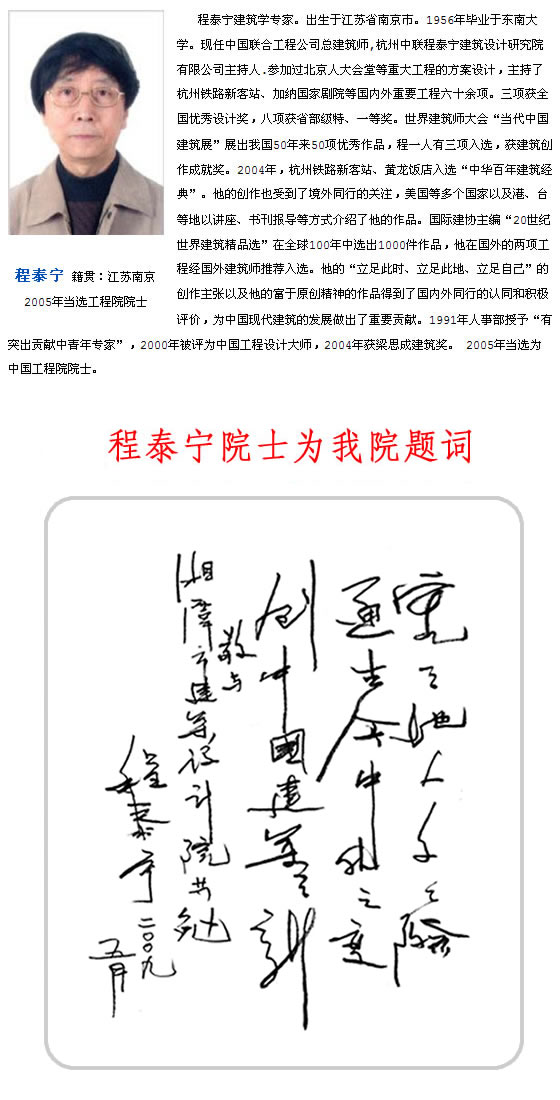 程泰宁建筑学专家。出生于江苏省南京市。1956年毕业于东南大
学。现任中国联合工程公司总建筑师,杭州中联程泰宁建筑设计研究院
有限公司主持人.参加过北京人大会堂等重大工程的方案设计，主持了
杭州铁路新客站、加纳国家剧院等国内外重要工程六十余项。三项获全
国优秀设计奖，八项获省部级特、一等奖。世界建筑师大会“当代中国
建筑展”展出我国50年来50项优秀作品，程一人有三项入选，获建筑创
作成就奖。2004年，杭州铁路新客站、黄龙饭店入选“中华百年建筑经
典”。他的创作也受到了境外同行的关注，美国等多个国家以及港、台
等地以讲座、书刊报导等方式介绍了他的作品。国际建协主编“20世纪
世界建筑精品选”在全球100年中选出1000件作品，他在国外的两项工
程经国外建筑师推荐入选。他的“立足此时、立足此地、立足自己”的
创作主张以及他的富于原创精神的作品得到了国内外同行的认同和积极
评价，为中国现代建筑的发展做出了重要贡献。1991年人事部授予“有
突出贡献中青年专家”，2000年被评为中国工程设计大师，2004年获梁思成建筑奖。 2005年当选为
中国工程院院士。
程泰宁 籍贯：江苏南京
2005年当选工程院院士
程泰宁院士为我院题词
究天地人之際
通古今中外之变
创中國建筑之
敬与
湘潭市建筑设计院共勉
程泰宁
二〇〇九
五月